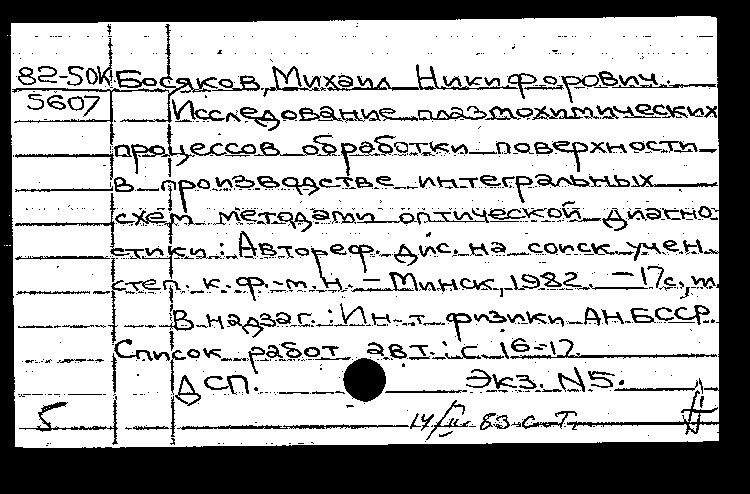 82-50К Босяков, Михаил Никифорович.
5607 Исследование плазмохимических
процессов обработки поверхности
в производстве интегральных
схем методами оптической диагно-
стики : Автореф. дис. на соиск. учен.
степ. к.ф.-м.н. – Минск, 1982. – 17 с., т.
В надзаг. : Ин-т физики АН БССР.
Список работ авт. : с. 16-17.
ДСП. Экз. N 5.
5 14/II-83 с Т.